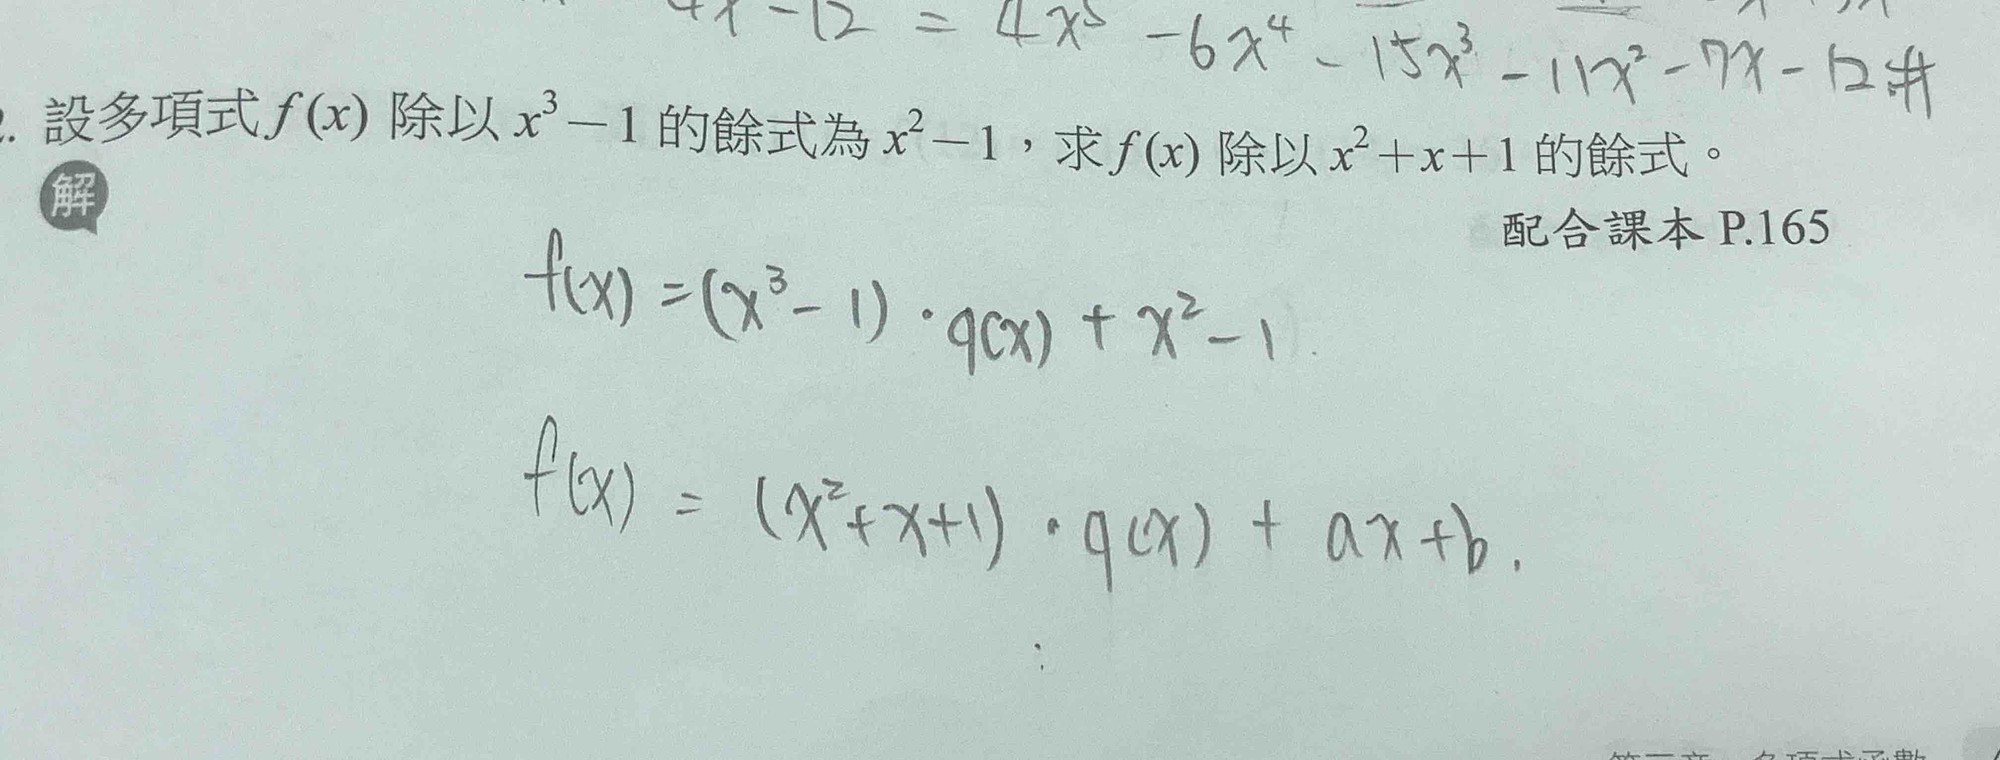 4x-12 = 4x⁵ -6x⁴ -15x³ -11x² -7x -12 #
. 設多項式 f(x) 除以 x³－1 的餘式為 x²－1，求 f(x) 除以 x²＋x＋1 的餘式。
解
配合課本 P.165
f(x) = (x³-1)·q(x) + x²-1.
f(x) = (x²+x+1)·q(x) + ax+b.
: